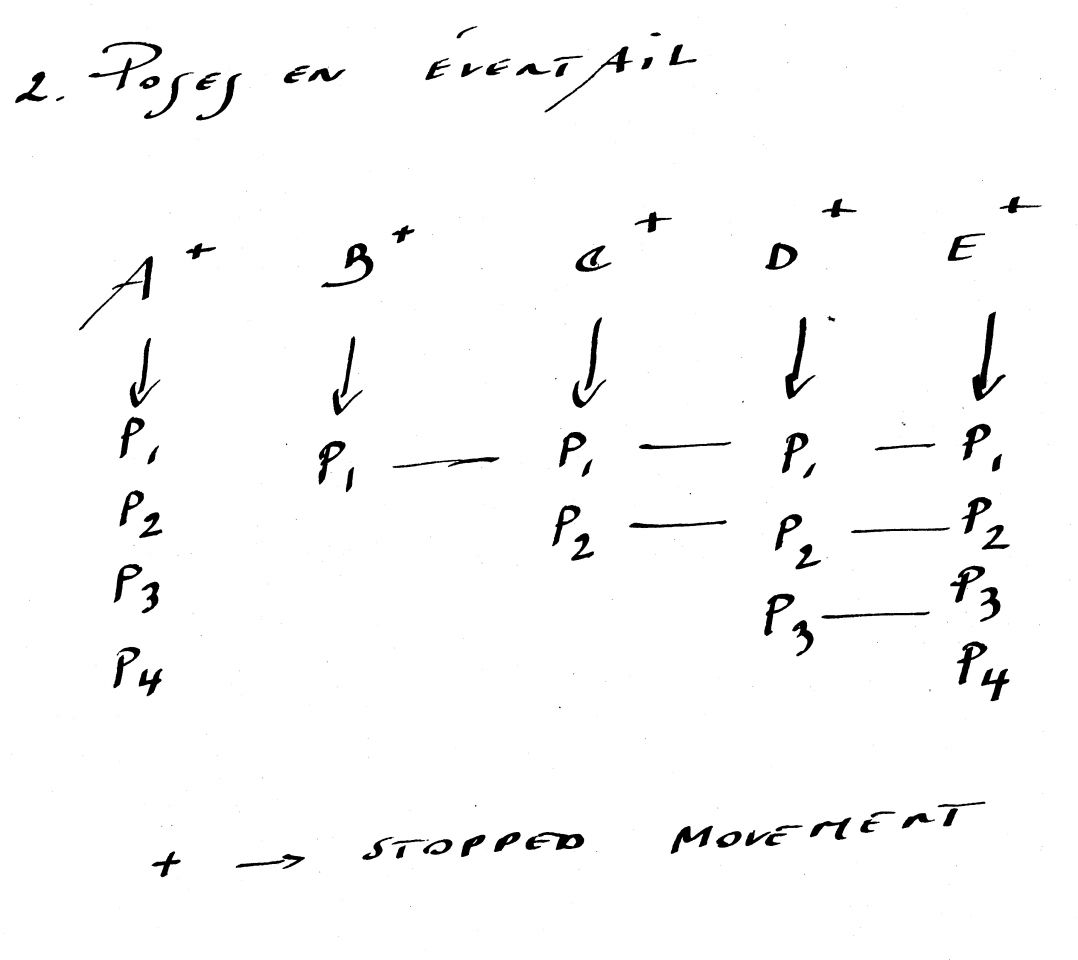 2. Poses en éventail
A+ B+ C+ D+ E+
↓ ↓ ↓ ↓ ↓
P1 P1 — P1 — P1 — P1
P2 P2 — P2 — P2
P3 P3 — P3
P4 P4
+ → STOPPED MOVEMENT